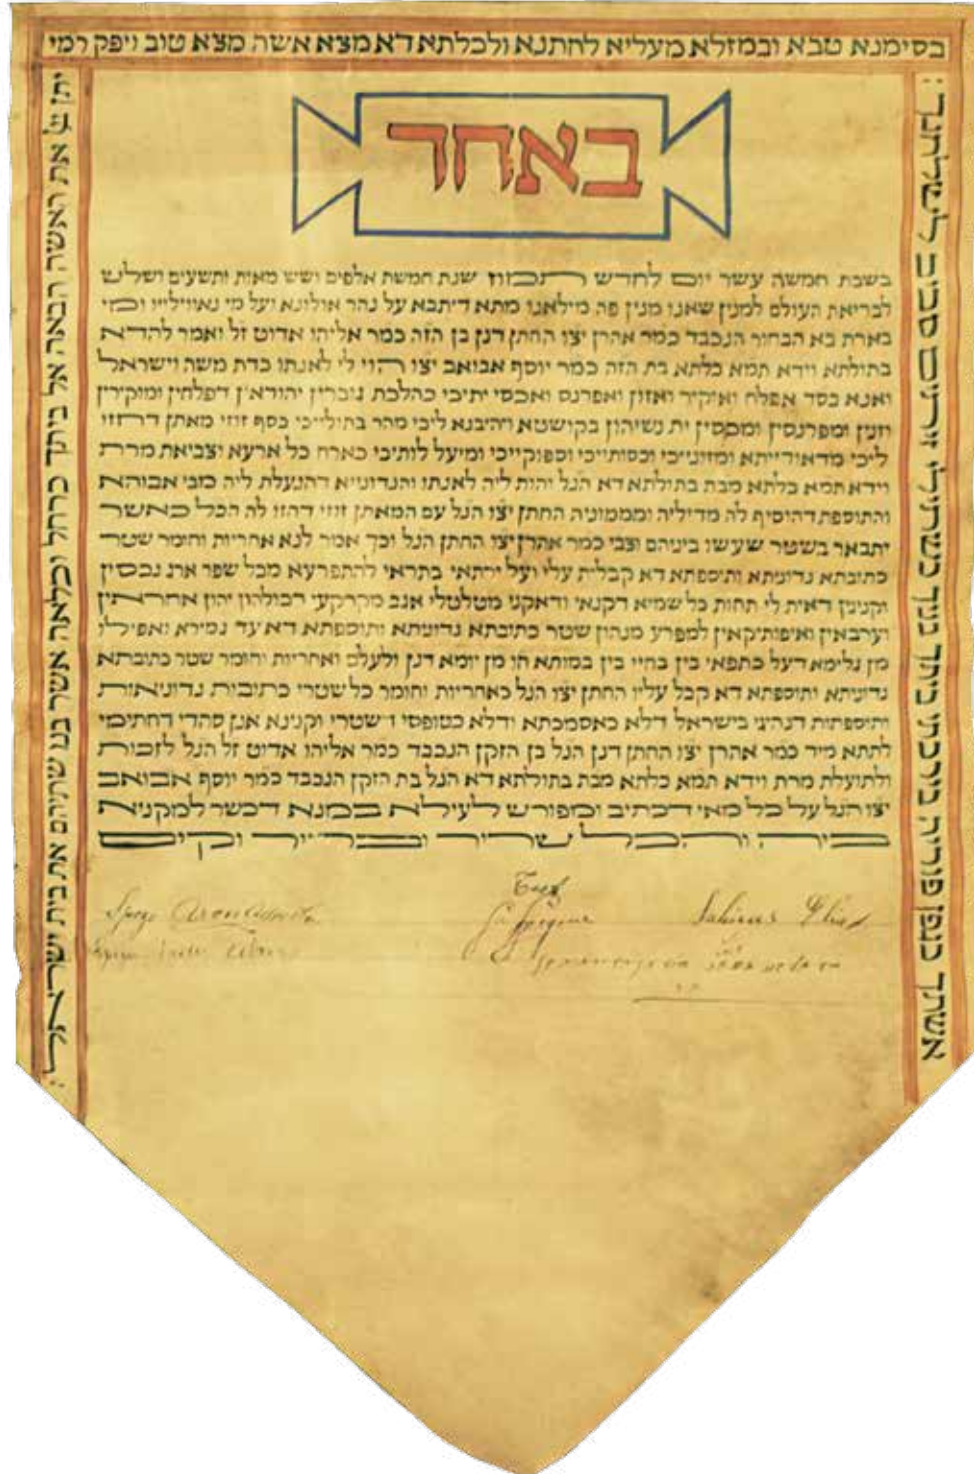 בסימנא טבא ובמזלא מעליא לחתנא ולכלתא דא מצא אשה מצא טוב ויפק רמי
יתן ה׳ את האשה הבאה אל ביתך כרחל וכלאה אשר בנו שתיהם את בית ישראל:
אשתך כגפן פוריה בירכתי ביתך בניך כשתילי זיתים סביב לשלחנך:
באחד
בשבת חמשה עשר יום לחדש תמוז שנת חמשת אלפים ושש מאות ותשעים ושלש
לבריאת העולם למנין שאנו מנין פה מילאנו מתא דיתבא על נהר אולונא ועל מי נאויליייו ומי
בארת בא הבחור הנכבד כמר אהרן יצו החתן דנן בן הזה כמר אליהו אדוט זל ואמר להדא
בתולתא וידא תמא כלתא בת הזה כמר יוסף אבואב יצו הוי לי לאנתו כדת משה וישראל
ואנא בסד אפלח ואוקיר ואזון ואפרנס ואכסי יתיכי כהלכת גוברין יהודאין דפלחין ומוקירין
וזנין ומפרנסין ומכסין ית נשיהון בקושטא ויהיבנא ליכי מהר בתולייכי כסף זוזי מאתן דחזו
ליכי מדאורייתא ומזונייכי וכסותייכי וספוקייכי ומיעל לותיכי כארח כל ארעא וצביאת מרת
וידא תמא כלתא מבת בתולתא דא הנל והות ליה לאנתו והנדוניא דהנעלת ליה מבי אבוהא
והתוספת דהוסיף לה מדיליה ומממוניה החתן יצו הנל עם המאתן זוזי דחזו לה הכל כאשר
יתבאר בשטר שעשו ביניהם וצבי כמר אהרן יצו החתן הנל וכך אמר לנא אחריות וחומר שטר
כתובתא נדוניתא ותוספתא דא קבלית עלי ועל ירתאי בתראי להתפרעא מכל שפר ארג נכסין
וקנינין דאית לי תחות כל שמיא דקנאי ודאקנו מטלטלי אגב מקרקעי דכולהון יהון אחראין
וערבאין ואיפותיקאין למפרע מנהון שטר כתובתא נדוניתא ותוספתא דא עד גמירא ואפילו
מן גלימא דעל כתפאי בין בחיי בין במותא הן מן יומא דנן ולעלם ואחריות וחומר שטר כתובתא
נדוניתא ותוספתא דא קבל עליו החתן יצו הנל כאחריות וחומר כל שטרי כתובות נדוניאות
ותוספתות דנהיגי בישראל דלא כאסמכתא ודלא כטופסי דשטרי וקנינא אנן סהדי דחתימי
לתתא מיד כמר אהרן יצו החתן דנן הנל בן הזקן הנכבד כמר אליהו אדוט זל הנל לזכות
ולתועלת מרת וידא תמא כלתא מבת בתולתא דא הנל בת הזקן הנכבד כמר יוסף אבואב
יצו הנל על כל מאי דכתיב ומפורש לעילא במנא דכשר למקניא
ביה והכל שריר ובריר וקים